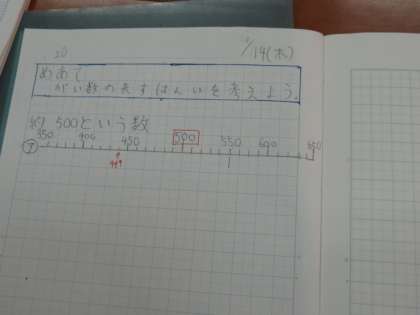 1/14(木)
めあて
がい数の表すはんいを考えよう。
500という数
㋐ 350 400 450 500 550 600 650
449